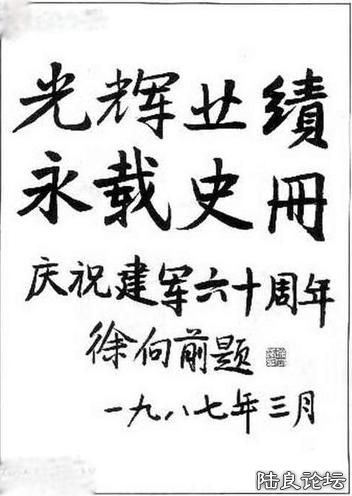 光辉业績
永载史冊
庆祝建军六十周年
徐向前题
一九八七年三月
陆良论坛